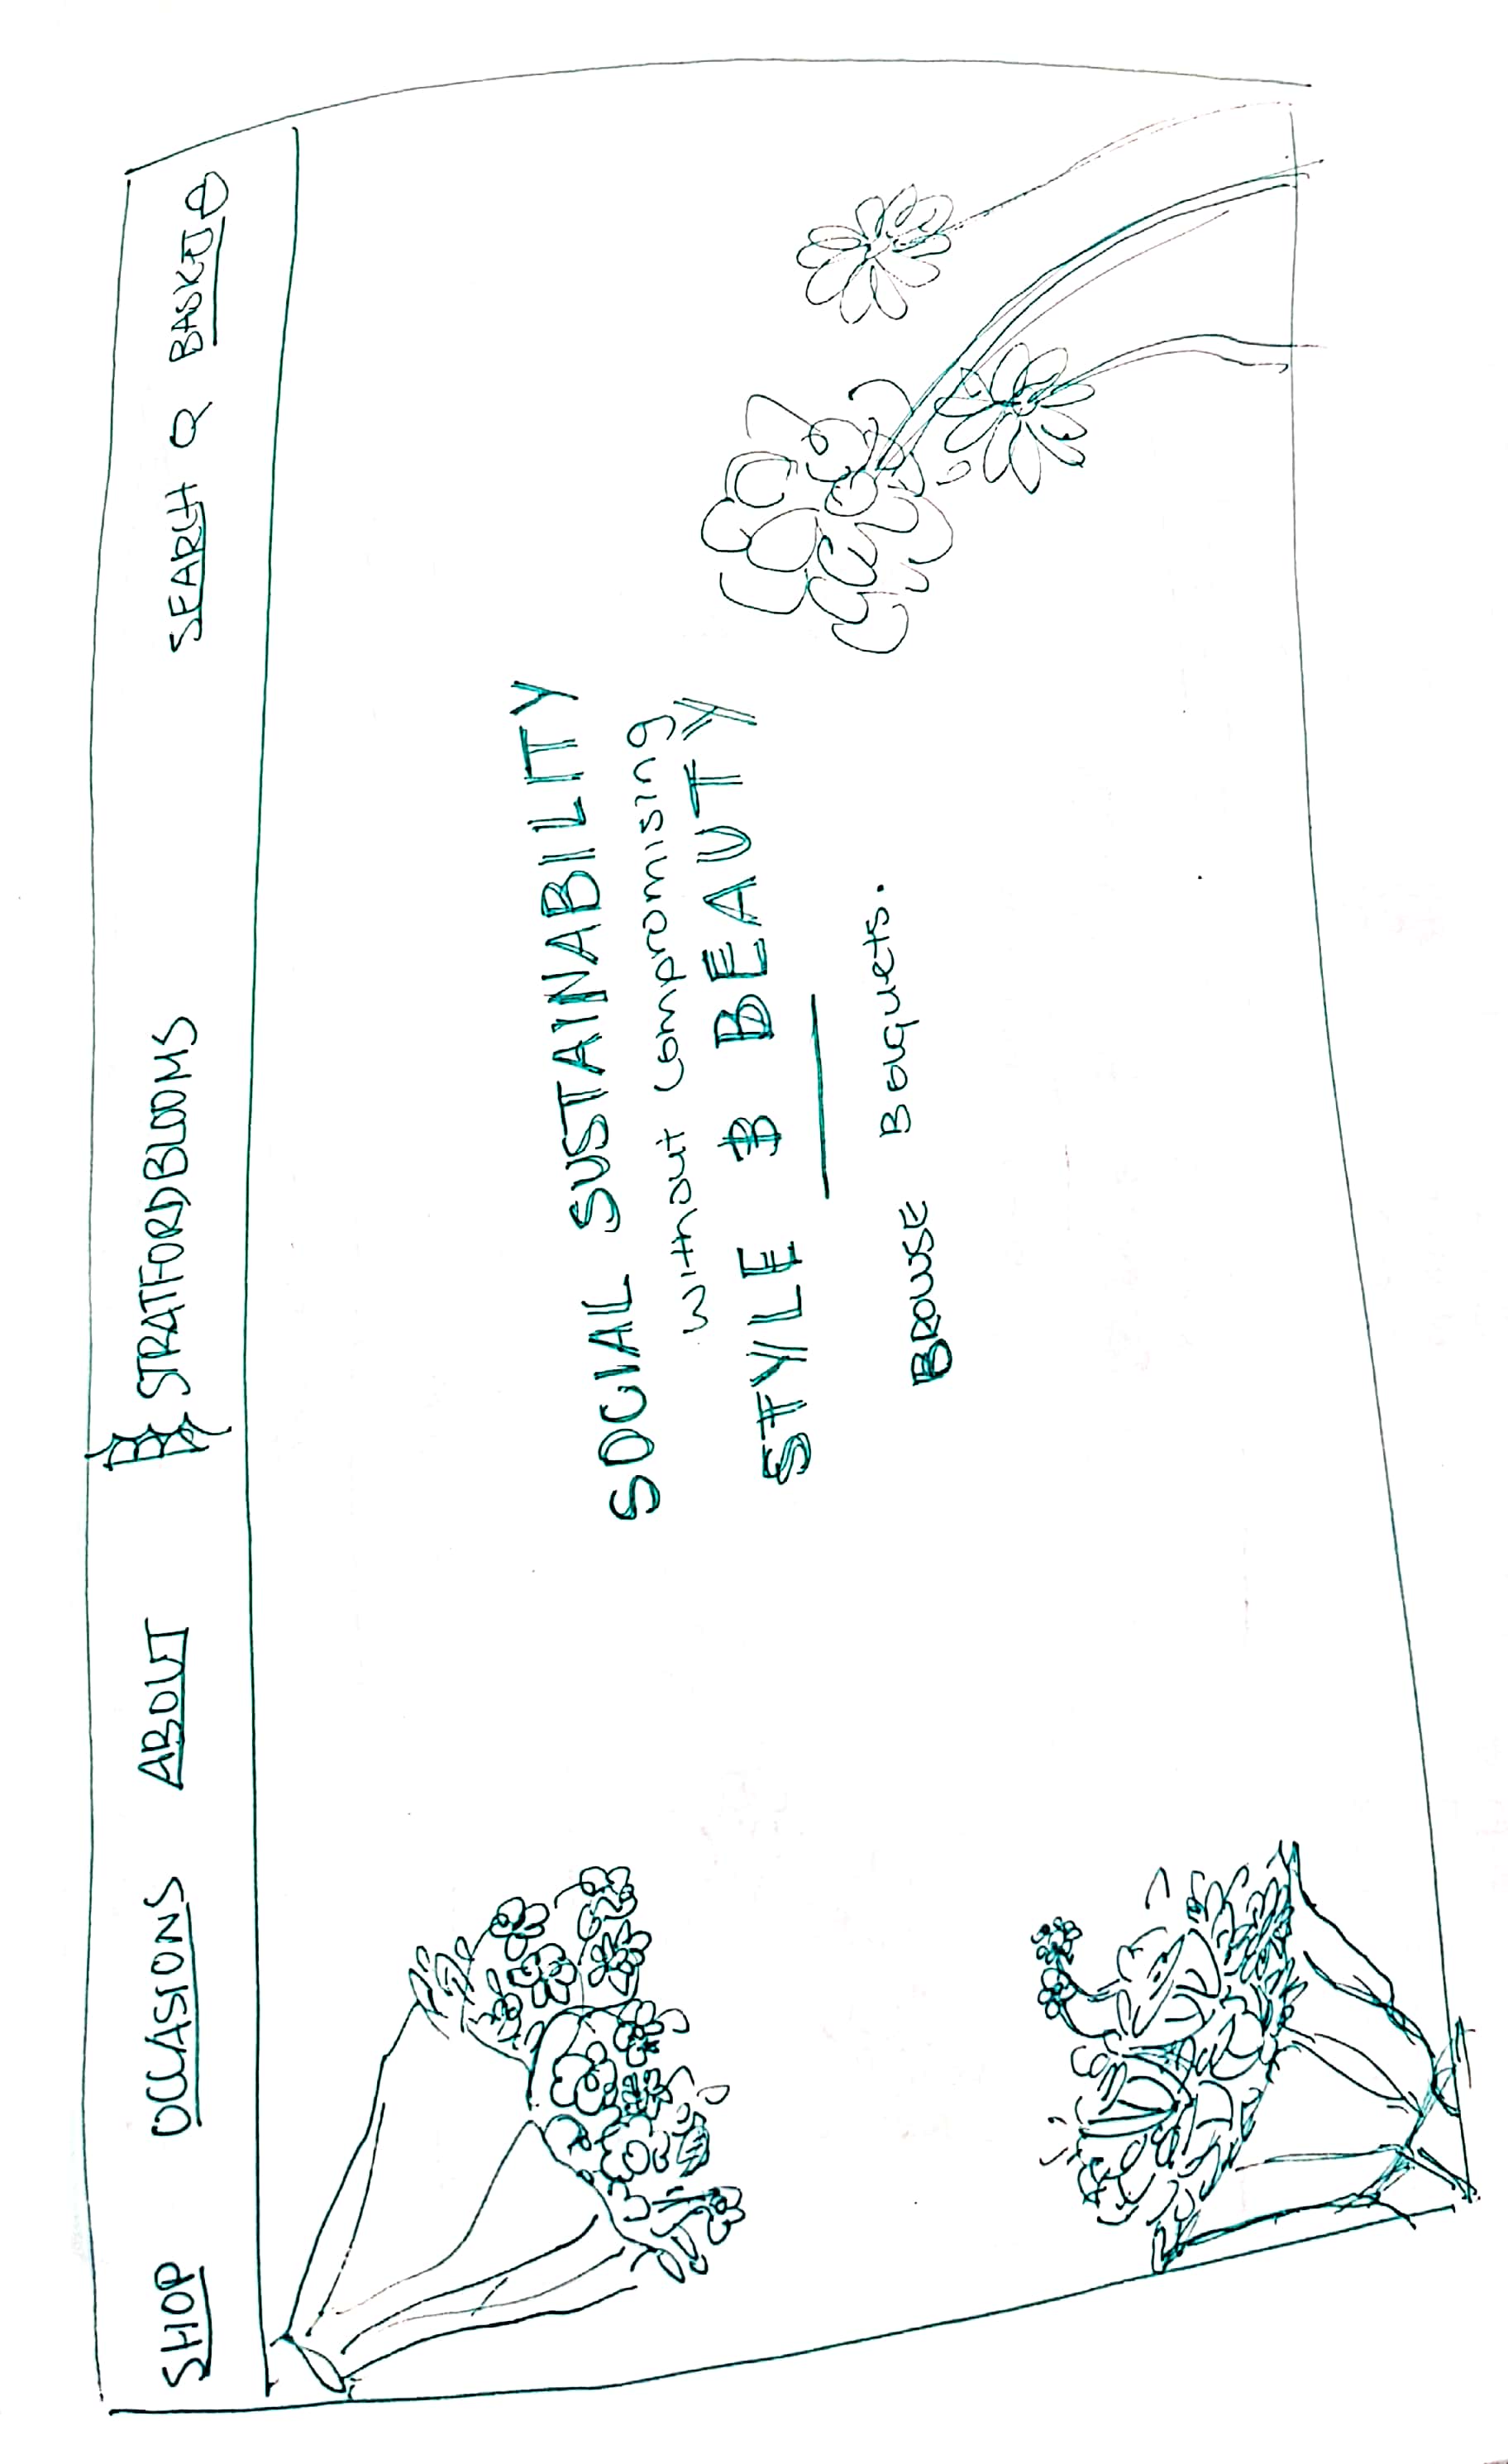 SHOP OCCASIONS ABOUT B STRATFORDBLOOMS SEARCH BASKET
SOCIAL SUSTAINABILITY
without compromising
STYLE & BEAUTY
BROWSE Bouquets.